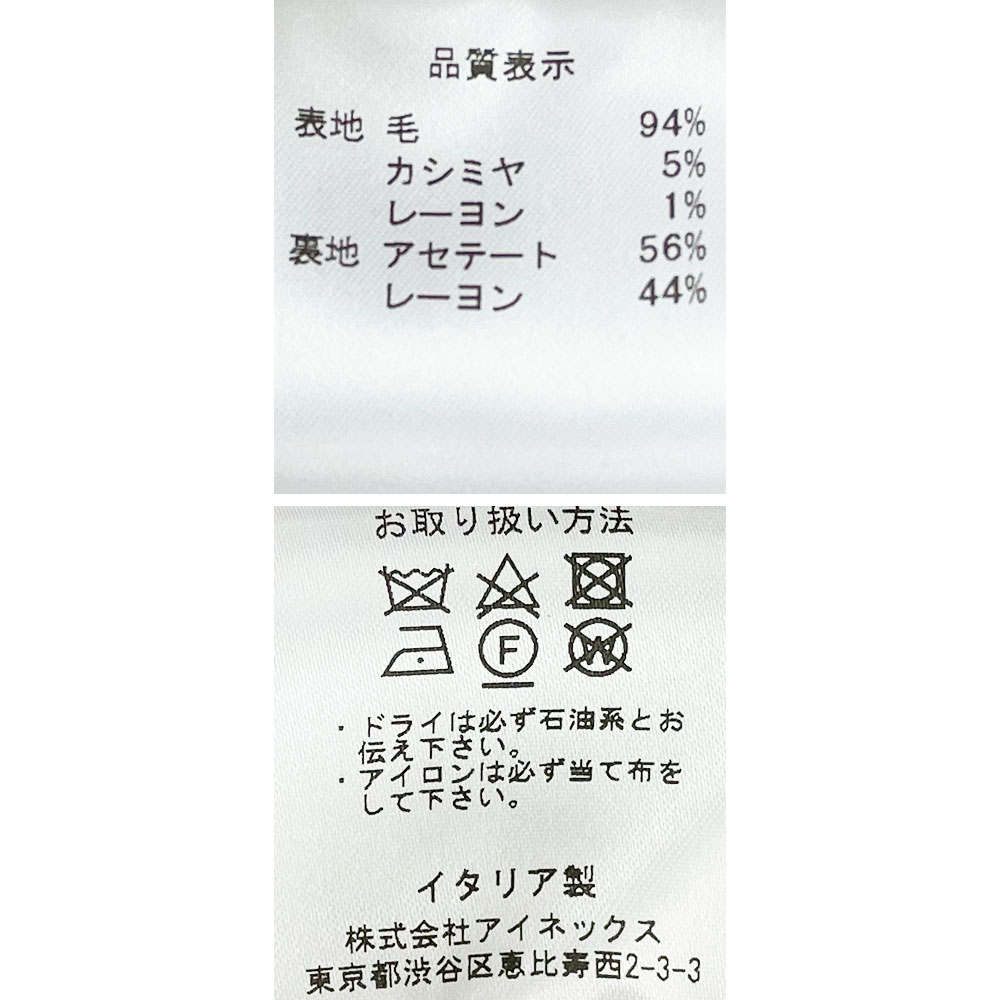 品質表示
表地 毛 94%
カシミヤ 5%
レーヨン 1%
裏地 アセテート 56%
レーヨン 44%
お取り扱い方法
F W
・ドライは必ず石油系とお
伝え下さい。
・アイロンは必ず当て布を
して下さい。
イタリア製
株式会社アイネックス
東京都渋谷区恵比寿西2-3-3